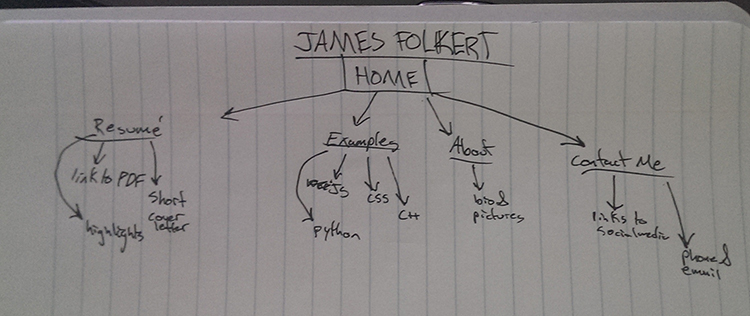 JAMES FOLKERT
HOME
Resumé
link to PDF
short
cover
letter
highlights
Examples
JS
CSS
C++
python
About
bio &
pictures
Contact Me
links to
social media
phone &
email